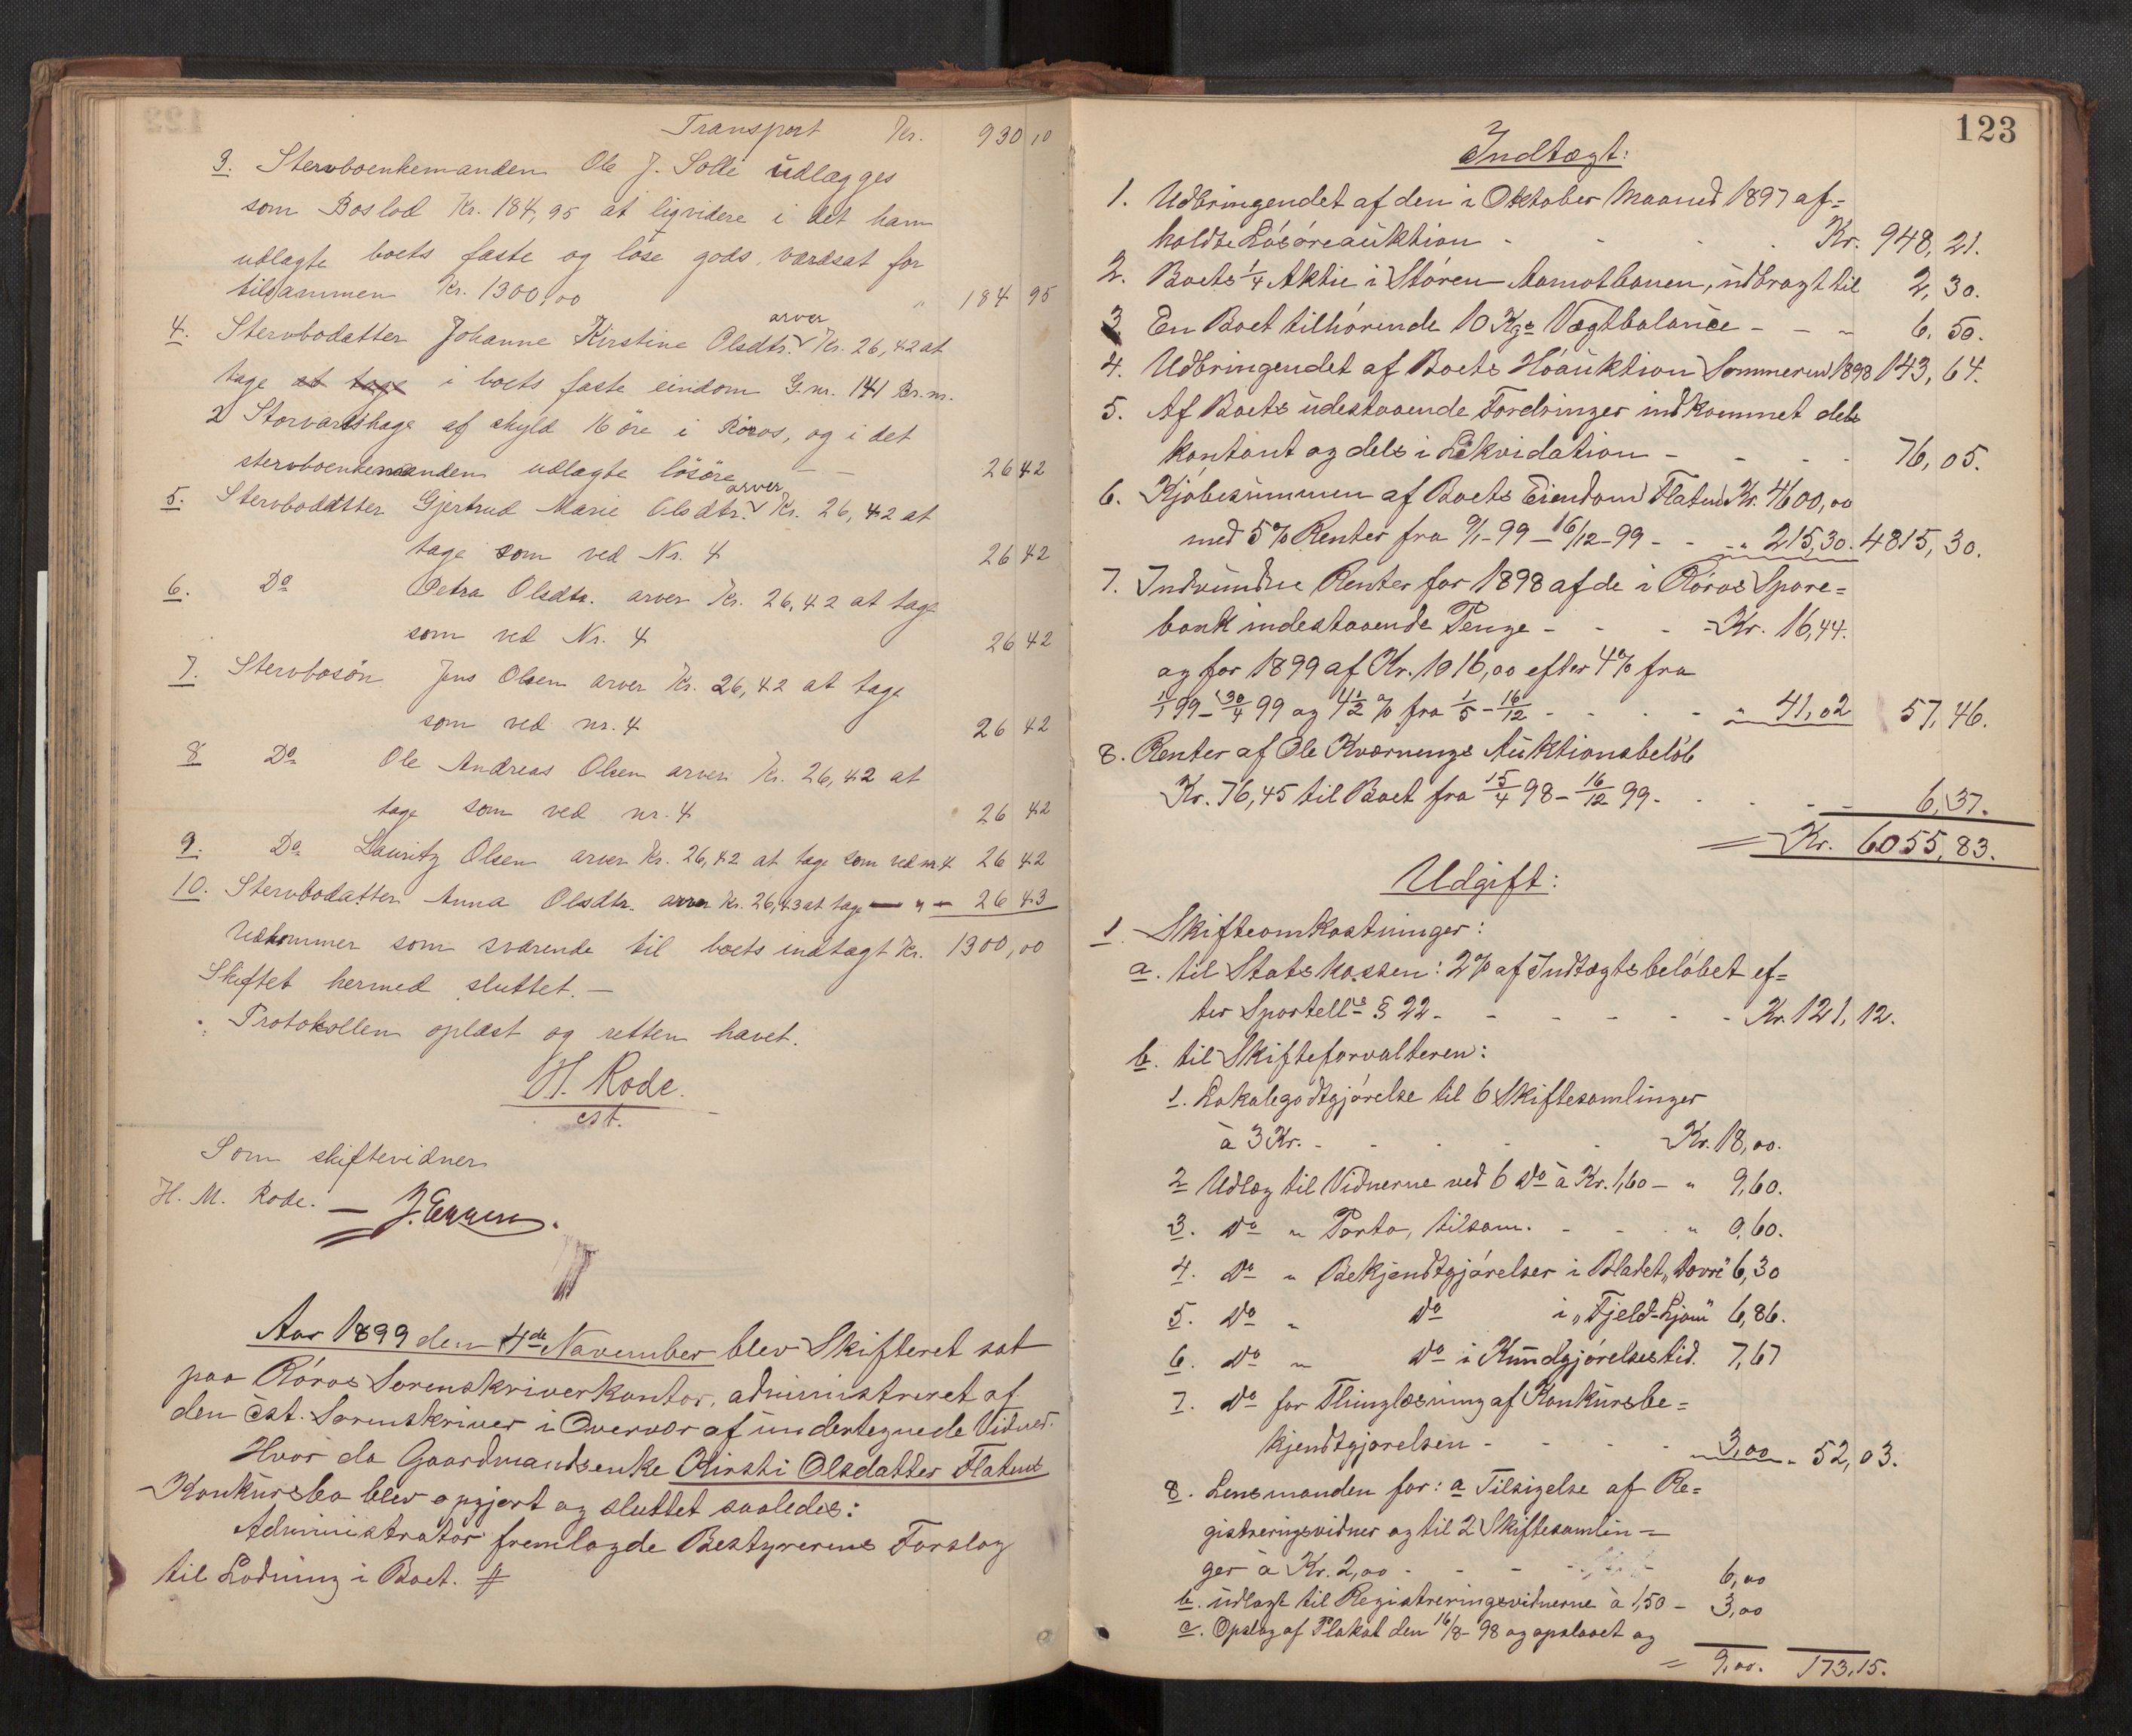 Transport Kr. 930,10
3. Stervboenkemanden Ole J. Solli udlægges
som Boslod Kr. 184,95 at liqvidere i det ham
udlagte boets faste og löse gods, værdsat for
tilsammen Kr. 1300,00 " 184 95
4. Stervbodatter Johanne Kirstine Olsdtr. arver Kr. 26,42 at
tage at tage i boets faste eindom G.nr. 141 Br.nr.
2 Storvartshage af skyld 16 öre i Röros, og i det
stervboenkemanden udlagte lösöre – – 26 42
5. Stervbodatter Gjertrud Marie Olsdtr. arver Kr. 26,42 at
tage som ved Nr. 4 26 42
6. Do Petra Olsdtr. arver Kr. 26,42 at tage
som ved Nr. 4 26 42
7. Stervbosön Jens Olsen arver Kr. 26,42 at tage
som ved nr. 4 26 42
8 Do Ole Andreas Olsen arver Kr. 26,42 at
tage som ved nr. 4 26 42
9. Do Lauritz Olsen arver Kr. 26,42 at tage som ved nr 4 26 42
10. Stervbodatter Anna Olsdtr. arver Kr. 26,43 at tage — " — 26 43
Udkommer som svarende til boets indtægt Kr. 1300,00
Skiftet hermed sluttet. —
Protokollen oplæst og retten hævet.
H. Rode.
cst.
Som skiftevidner
H. M. Rode. — J. Eggen.
Aar 1899 den 4de November blev Skifteret sat
paa Röros Sorenskriverkontor, administreret af
den cst. Sorenskriver i Overvær af undertegnede Vidner.
Hvor da Gaardmandsenke Kirsti Olsdatter Flatens
Konkursbo blev opgjort og sluttet saaledes:
Administrator fremlagde Bestyrerens Forslag
til Lodning i Boet. #
123
Indtægt:
1. Udbringendet af den i Oktober Maaned 1897 af=
holdte Lösöreauktion - - - - Kr. 948,21.
2. Boets 1/4 Aktie i Stören-Aamotbanen, udbragt til 2,30.
3. En Boet tilhörende 10 Kgs Vægtbalance - - - 6,50.
4. Udbringendet af Boets Höauktion Sommeren 1898 143,64.
5. Af Boets udestaaende Fordringer indkommet dels
kontant og dels i Likvidation - - - - 76,05.
6. Kjöbesummen af Boets Eiendom Flaten Kr. 4600,00
med 5% Renter fra 9/1-99 - 16/12-99 - - - " 215,30. 4815,30.
7. Indvundne Renter for 1898 af de i Röros Spare=
bank indestaaende Penge - - - Kr. 16,44.
og for 1899 af Kr. 1016,00 efter 4% fra
1/1 99 - 30/4 99 og 4 1/2 % fra 1/5 - 16/12 - - - - " 41,02 57,46.
8. Renter af Ole Kværnengs Auktionsbelöb
Kr. 76,45 til Boet fra 15/4 98 - 16/12 99 - - - - - 6,37.
= Kr. 6055,83.
Udgift:
1. Skifteomkostninger:
a. til Statskassen: 2% af Indtægtsbelöbet ef=
ter Sportell. § 22 - - - - - - Kr. 121,12.
b. til Skifteforvalteren:
1. Lokalegodtgjörelse til 6 Skiftesamlinger
à 3 Kr. - - - - - Kr. 18,00.
2 Udlæg til Vidnerne ved 6 do à Kr. 1,60 - " 9,60.
3. do " Porto, tilsam. - - - " 0,60.
4. do " Bekjendtgjörelser i Bladet „Dovre" 6,30
5. do " do i „Fjeld-Ljom" 6,86.
6. do " do i Kundgjörelsestid. 7,67
7. do for Thinglæsning af Konkursbe=
kjendtgjörelsen - - - - " 3,00 " 52,03.
8. Lensmanden for: a Tilsigelse af Re=
gistreringsvidner og til 2 Skiftesamlin=
ger à Kr. 2,00 - - - - 6,00
b. udlagt til Registreringsvidnerne à 1,50 - 3,00
c. Opslag af Plakat den 16/8-98 og opslaaet og
= 9,00. 173,15.